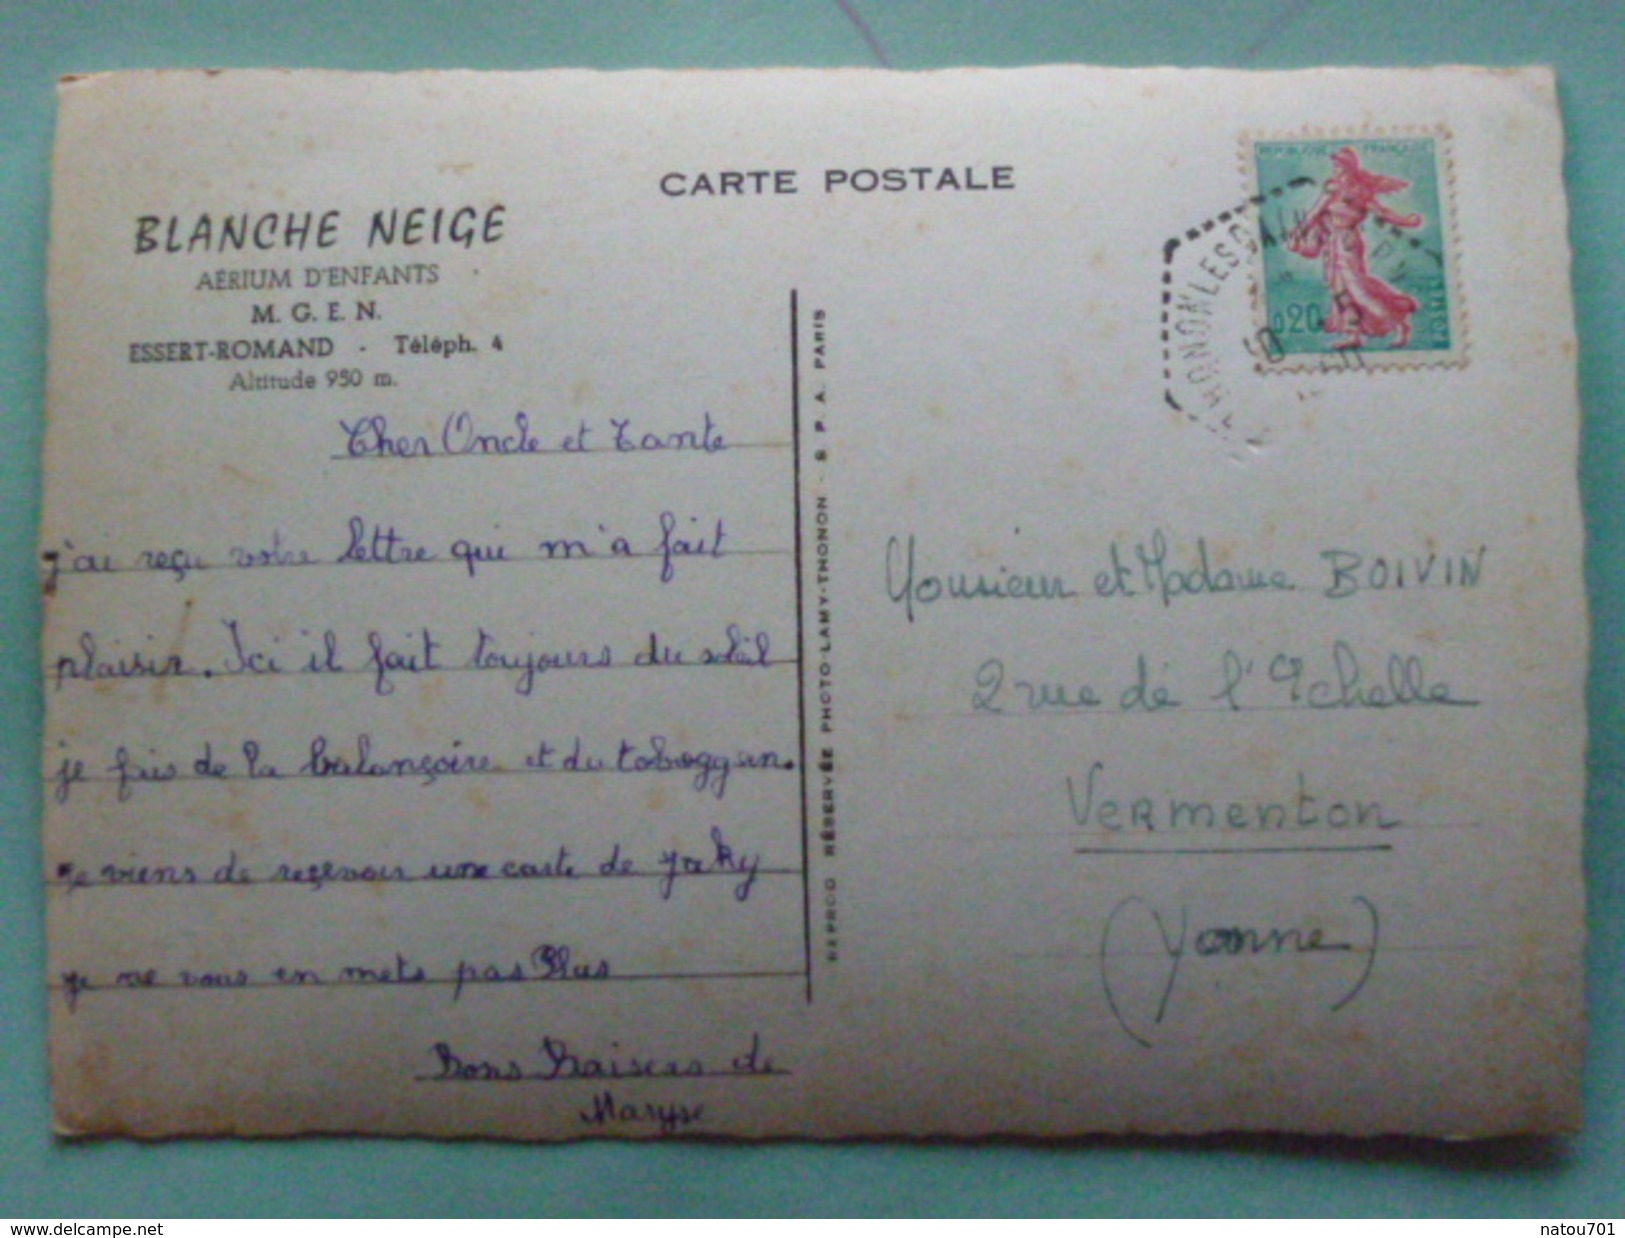 CARTE POSTALE
BLANCHE NEIGE
AÉRIUM D'ENFANTS
M. G. E. N.
ESSERT-ROMAND - Téléph. 4
Altitude 950 m.
Cher Oncle et Tante
j'ai reçu votre lettre qui m'a fait
plaisir. Ici il fait toujours du soleil
je fais de la balançoire et du toboggan.
je viens de reçevoir une carte de Jaky
je ne vous en mets pas Plus
Bons Baisers de
Maryse
REPROD RÉSERVÉE PHOTO-LAMY-THONON - S. P. A. PARIS
REPUBLIQUE FRANÇAISE
0,20
POSTES
THONON LES BAINS
Monsieur et Madame BOIVIN
2 rue de l'Echelle
Vermenton
(Yonne)
www.delcampe.net
natou701